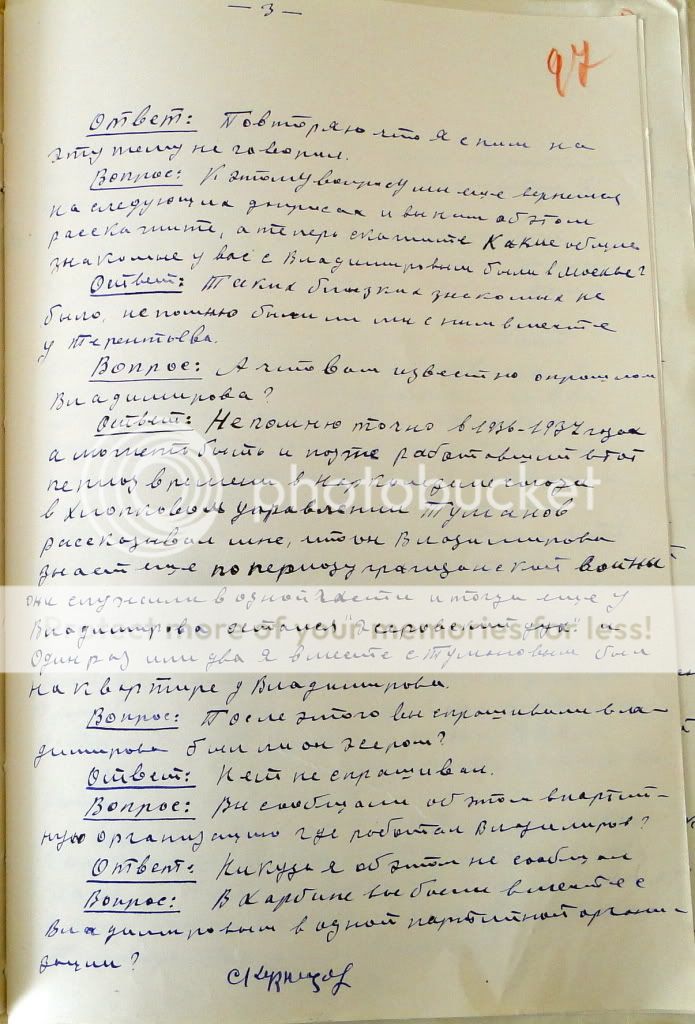 — 3 —
97
Ответ: Повторяю что я с ним на
эту тему не говорил.
Вопрос: К этому вопросу мы еще вернемся
на следующих допросах и вы нам об этом
расскажите, а теперь скажите какие общие
знакомые у вас с Владимировым были в Москве?
Ответ: Таких близких знакомых не
было, не помню были ли мы с ним вместе
у Терентьева.
Вопрос: А что вам известно о прошлом
Владимирова?
Ответ: Не помню точно в 1936-1937 годах
а может быть и позже работавший в тот
период времени в
в Хлопковом управлении Туманов
рассказывал мне, что он Владимирова
знает еще по периоду гражданской войны
они служили в одной части и тогда еще у
Владимирова остался "эсеровский дух" и
Один раз или два я вместе с Тумановым был
на квартире у Владимирова.
Вопрос: После этого вы спрашивали Вла-
димирова был ли он эсером?
Ответ: Нет не спрашивал.
Вопрос: Вы сообщали об этом в партий-
ную организацию где работал Владимиров?
Ответ: Никуда я об этом не сообщал
Вопрос: В Харбине вы были вместе с
Владимировым в одной партийной органи-
зации?
photobucket
Protect more of your memories for less!